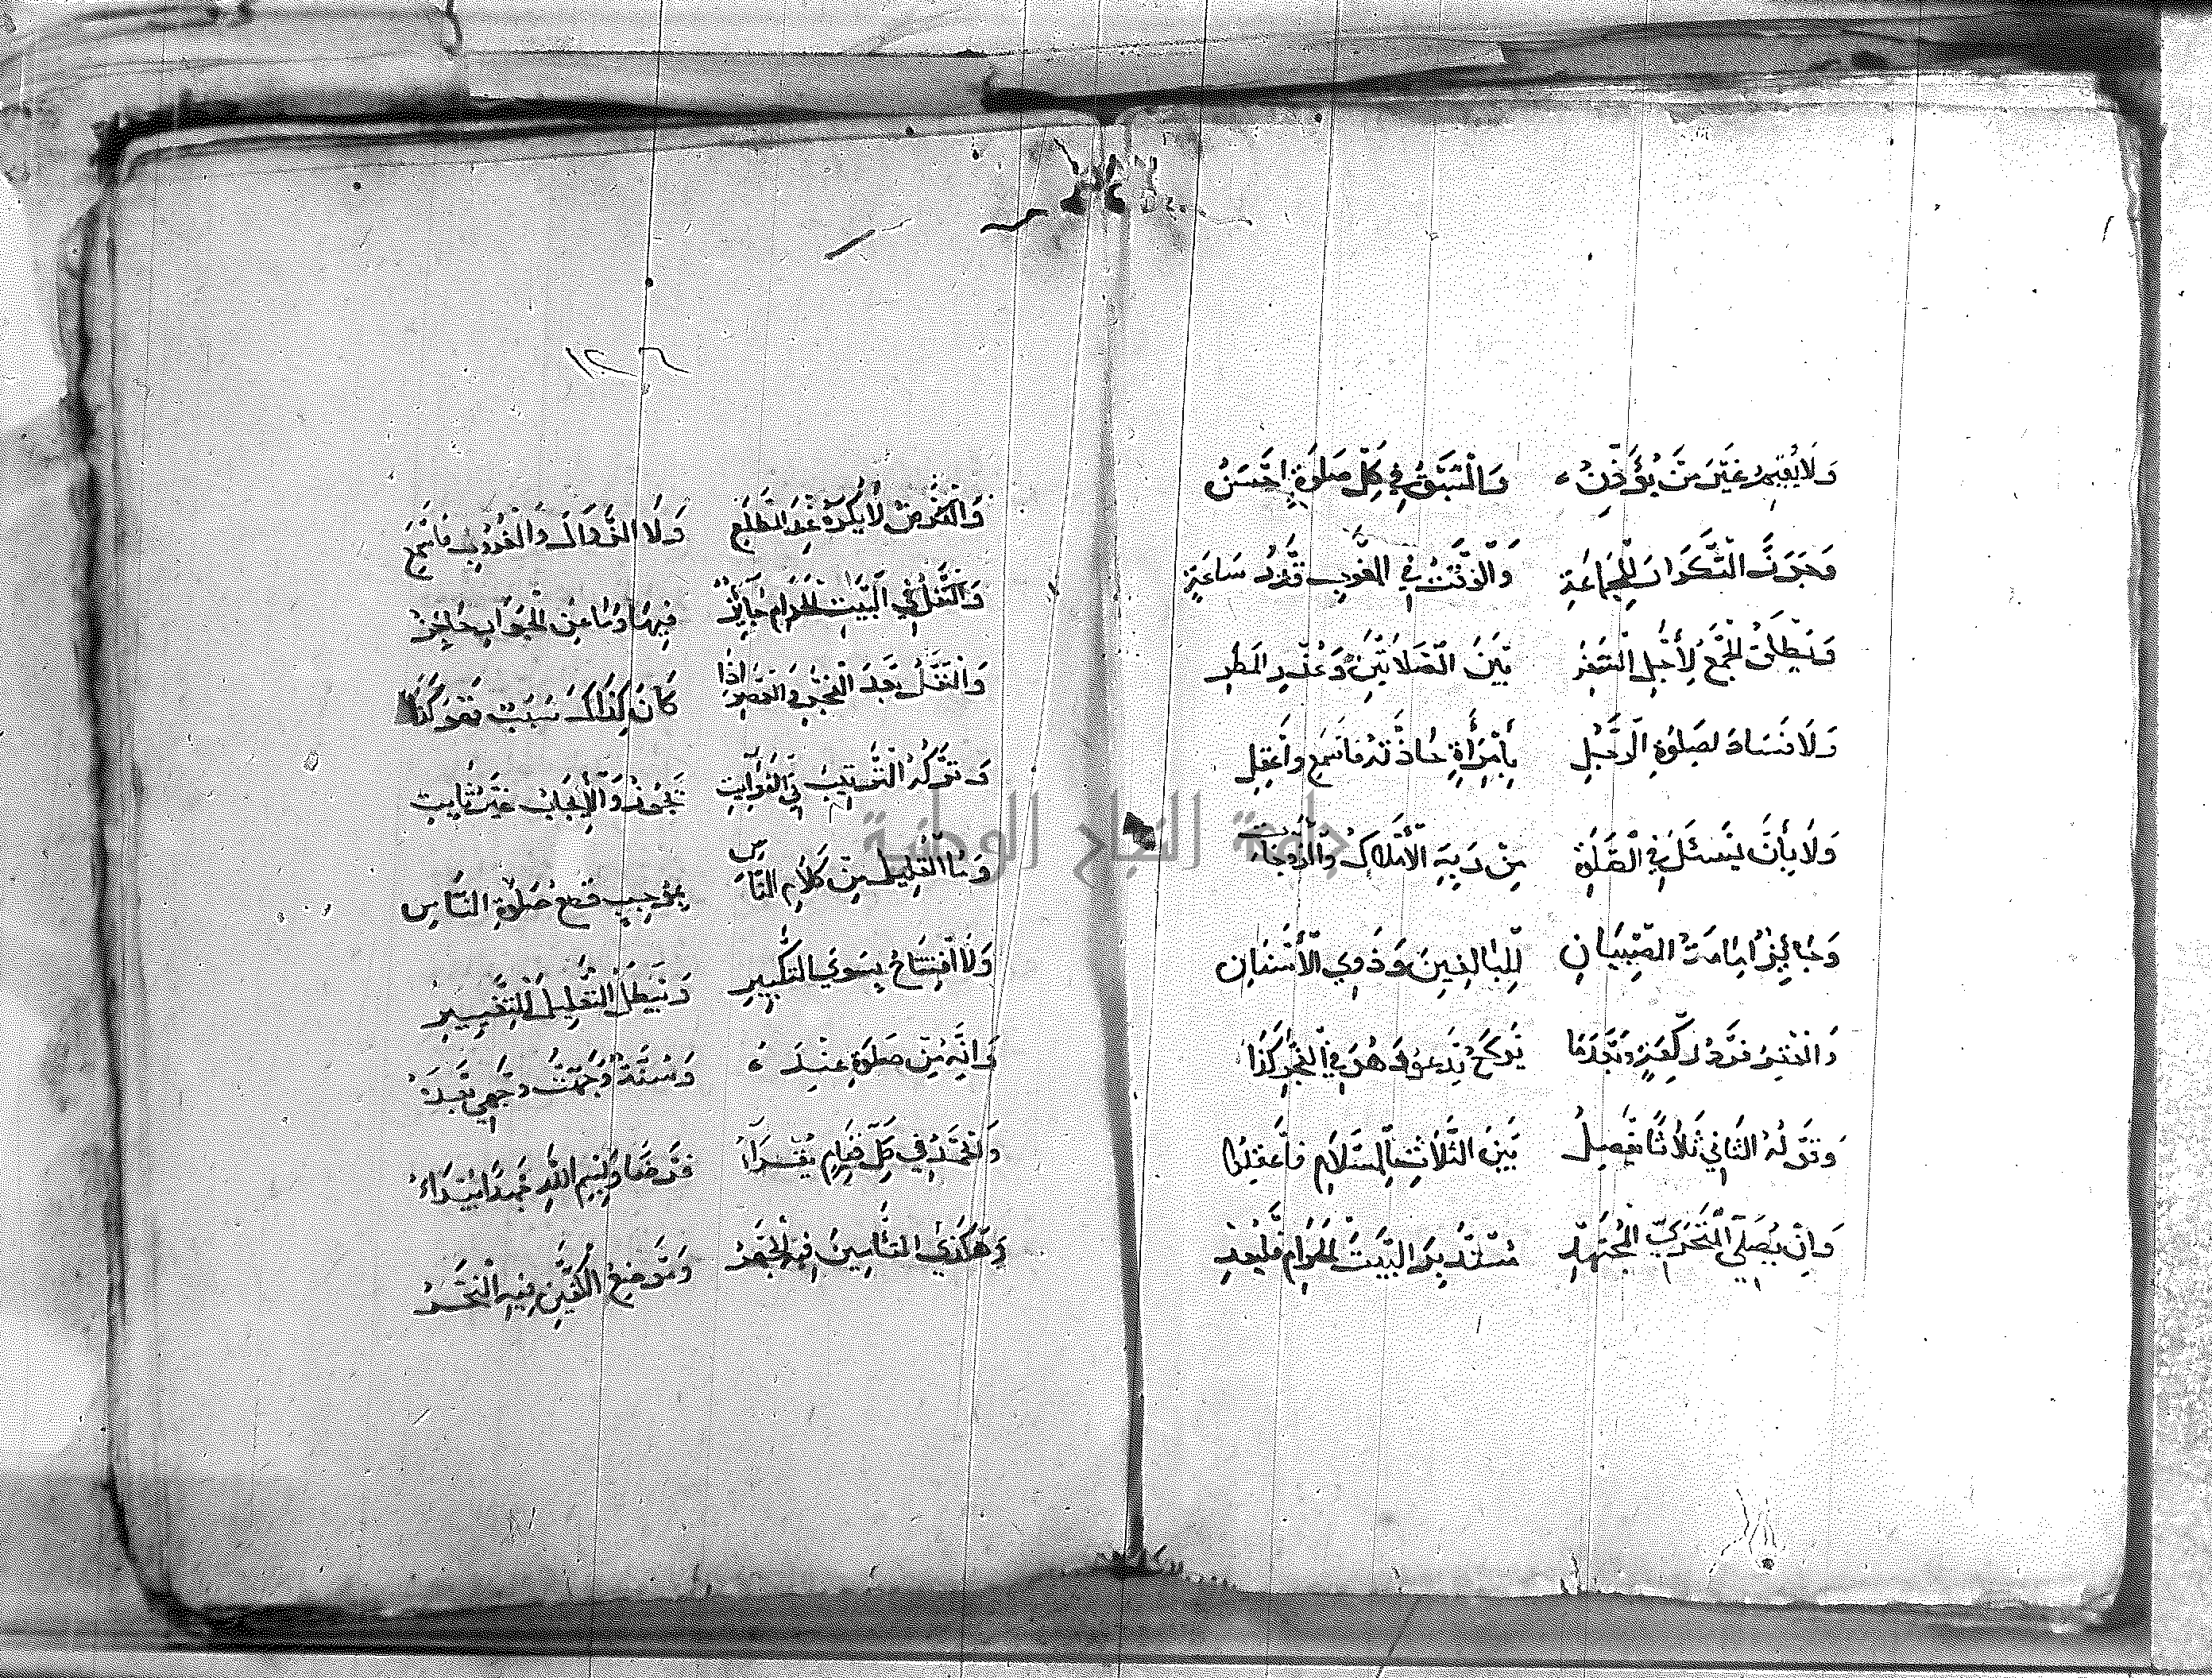 وَلَا يُقِيمُ غَيْرَ مَنْ يُؤَذِّنُ وَالسَّبْقُ فِي كُلِّ صَلوٰةٍ احْسَنُ
وَجَوَّزَ التَّكْرَارَ لِلْجَمَاعَةِ وَالْوَقْتُ فِي المَغْرِبِ قَدْرُ سَاعَةِ
وَيُطْلَقُ الْجَمْعُ لِأَجْلِ السَّفَرِ بَيْنَ الصَّلَاتَيْنِ وَعُذْرِ المَطَرِ
وَلَا فَسَادَ لصَلوٰةِ الرَّجُلِ بِأمْرَأَةٍ حَاذَتْهُ فَاسْمَع واعْقِلِ
وَلَا بِأَنْ يَسْئَلَ فِي الصَّلوٰةِ مِنْ رَبِّهِ الْأَمْلَاكَ وَالزَّوْجَاتِ
وَجَائِزٌ امَامَةُ الصِّبْيَانِ لِلْبَالِغِينَ وَذَوِي الْأَسْنَانِ
وَالْوِتْرُ فَرْدُ رَكْعَةٍ وَبَعْدَمَا يَرْكَعُ يَدْعُو وَهُوَ فِي الْفَجْرِ كَذَا
وَقَوْلُهُ الثَّانِي ثَلَاثًا يُفْصِلُ بَيْنَ الثَّلَاثِ بِالسَّلَامِ فَاعْقِلُوا
وَانْ يُصَلِّي الْمُتَحَرِّي الْمُجْتَهِدِ مُسْتَدْبِرَ الْبَيْتِ الْحَرَامِ فَلْيُعِدِ
١٢٠٦
وَالْفَرْضُ لَا يُكْرَهُ عِنْدَ المَطْلَعِ وَلَا الزَّوَالِ وَالْغُرُوبِ فَاسْمَعِ
وَالنَّفْلُ فِي الْبَيْتِ الْحَرَامِ جَائِزُ فِيهَا وَمَا عَنِ الْجَوَابِ حَاجِزُ
وَالنَّفْلُ بَعْدَ الْفَجْرِ وَالْعَصْرِ اذَا كَانَ كَذَاكَ سَبَبٌ فَهُوَ كَذَا
وَتَرْكُهُ التَّرْتِيبَ فِي الْفَوَائِتِ تَجُوزُ وَالْإِيجَابُ غَيْرُ ثَابِتِ
وَمَا الْقَلِيلُ مِنْ كَلَامِ النَّاسِ بِمُوجِبٍ قَطْعَ صَلوٰةِ النَّاسِ
وَلَا افْتِتَاحُ بِسِوَى التَّكْبِيرِ وَيُبْطِلُ التَّعْلِيلَ لِلتَّغْيِيرِ
وَانَّهُ مِنْ صَلوٰةِ عِنْدَهُ وَسُنَّةٌ وَجَّهْتُ وَجْهِي بَعْدَهُ
وَالْحَمْدُ فِي كُلِّ قِيَامٍ يُقْرَأُ فَرْضًا وَبِسْمِ اللّٰهِ
وَهٰكَذَى التَّأْمِينُ فِيهِ الْجَهْرُ وَمَوْضِعُ الْكَفَّيْنِ فِيهِ النَّحْرُ
جامعة النجاح الوطنية